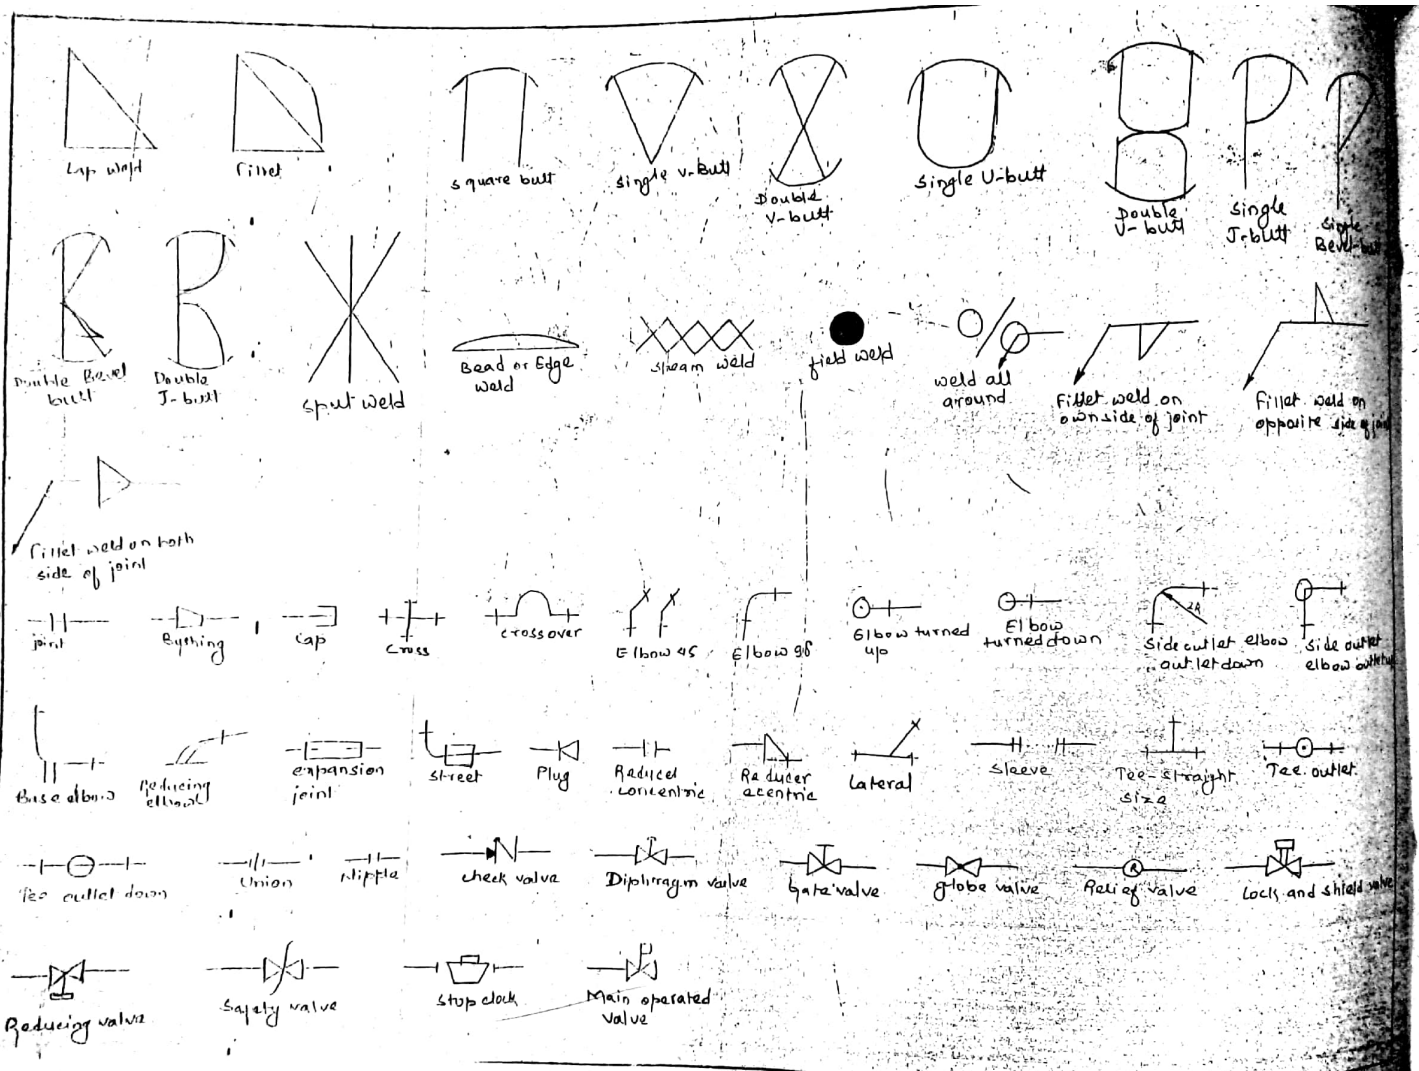 Lap weld
Fillet
square butt
single v-butt
Double
V-butt
single U-butt
Double
U-butt
single
J-butt
single
Bevel-butt
Double Bevel
butt
Double
J-butt
sput weld
Bead or Edge
weld
stream weld
field weld
weld all
around
Fillet weld on
own side of joint
Fillet weld on
opposite side of joint
Fillet weld on both
side of joint
joint
Bushing
Cap
Cross
crossover
Elbow 45
Elbow 90
Elbow turned
up
Elbow
turned down
2R
Side outlet elbow
outlet down
side outlet
elbow outlet up
Base elbow
Reducing
elbow
expansion
joint
street
Plug
Reducel
concentric
Reducer
ecentric
Lateral
sleeve
Tee-straight
size
Tee. outlet
Tee outlet down
Union
Nipple
check valve
Diphragm valve
Gate valve
globe valve
R
Relief valve
Lock and shield valve
Reducing valve
Safety valve
Stop clock
Main operated
valve